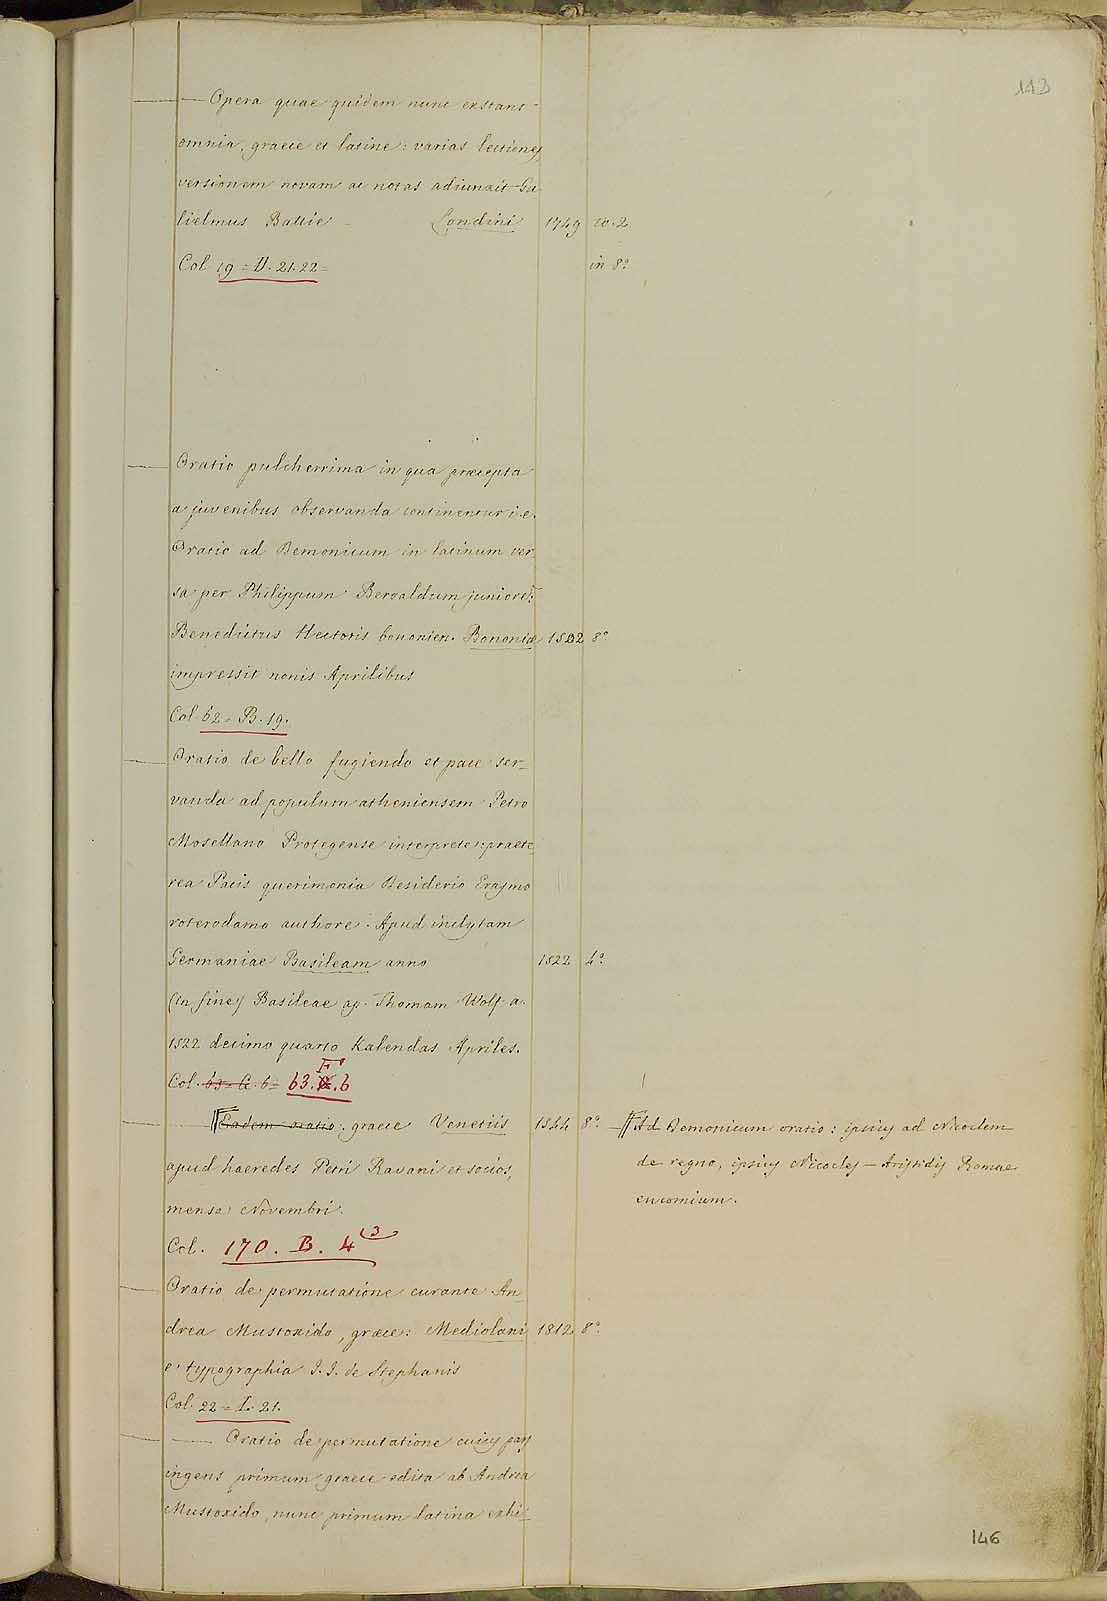 143
— Opera quae quidem nunc exstant
omnia, graece et latine: varias lectiones,
versionem novam ac notas adiunxit Gu
lielmus Battie - Londini 1749 to. 2
Col 19 = V. 21. 22 = in 8.°
Oratio pulcherrima in qua præcepta
a juvenibus observanda continentur i. e.
Oratio ad Demonicum in latinum ver
sa per Philippum Beroaldum juniorē:
Benedictus Hectoris bononien. Bononiæ 1502 8.°
impressit nonis Aprilibus
Col 62 = B. 19.
Oratio de bello fugiendo et pace ser-
vanda ad populum atheniensem Petro
Mosellano Protegense interprete: praete
rea Pacis querimonia Desiderio Erasmo
roterodamo authore. Apud inclytam
Germaniae Basileam anno 1522 4.°
(In fine) Basileae ap. Thomam Wolf a.
1522 decimo quarto Kalendas Apriles.
F
Col. 63 = G. 6 = 63. . 6
Eadem oratio: graece Venetiis 1544 8.° Ad Demonicum oratio: ipsius ad Nicoclem
apud haeredes Petri Ravani et socios, de regno, ipsius Nicocles — Aristidis Romae
mense Novembri. encomium.
Col. 170. B. 4 (3
Oratio de permutatione curante An
drea Mustoxido, græce: Mediolani 1812 8.°
e typographia I. I. de Stephanis
Col. 22 = L. 21.
— Oratio de permutatione cuius pars
ingens primum graece edita ab Andrea
Mustoxido, nunc primum latina exhi-
146